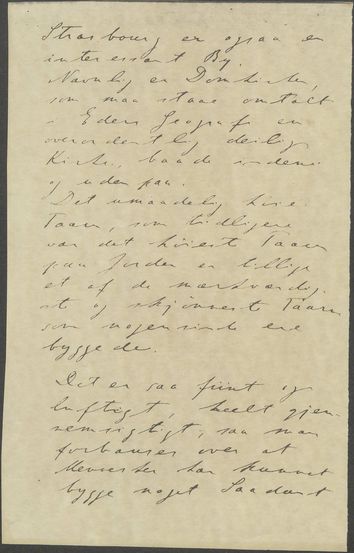 Strasbourg er ogsaa en
interessant By.
Navnlig en Domkirke,
som maa staae omtalt
i Eders Geografi en
overordentlig deilig
Kirke, baade indeni
og uden paa.
Det umaadelig høie
Taarn, som tidligere
var det høieste Taarn
paa Jorden er tillige
et af de mærkværdig-
ste og skjønneste Taarn
som nogensinde ere
byggede.
Det er saa fiint og
luftigt, heelt gjen-
nemsigtigt, saa man
forbauses over at
Mennesker har kunnet
bygge noget Saadant